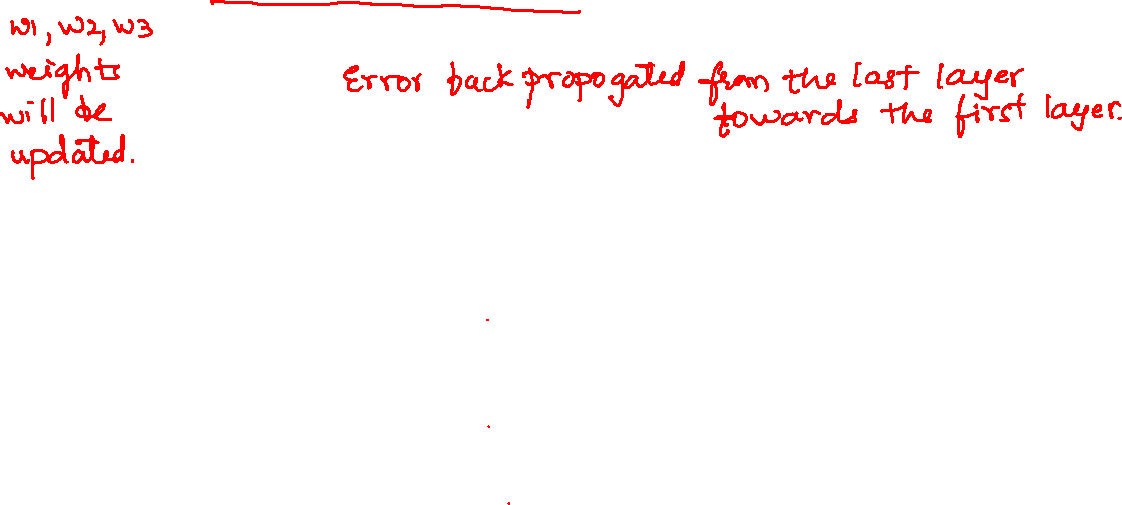 w1, w2, w3
weights
will be
updated.
Error back propogated from the last layer
towards the first layer.